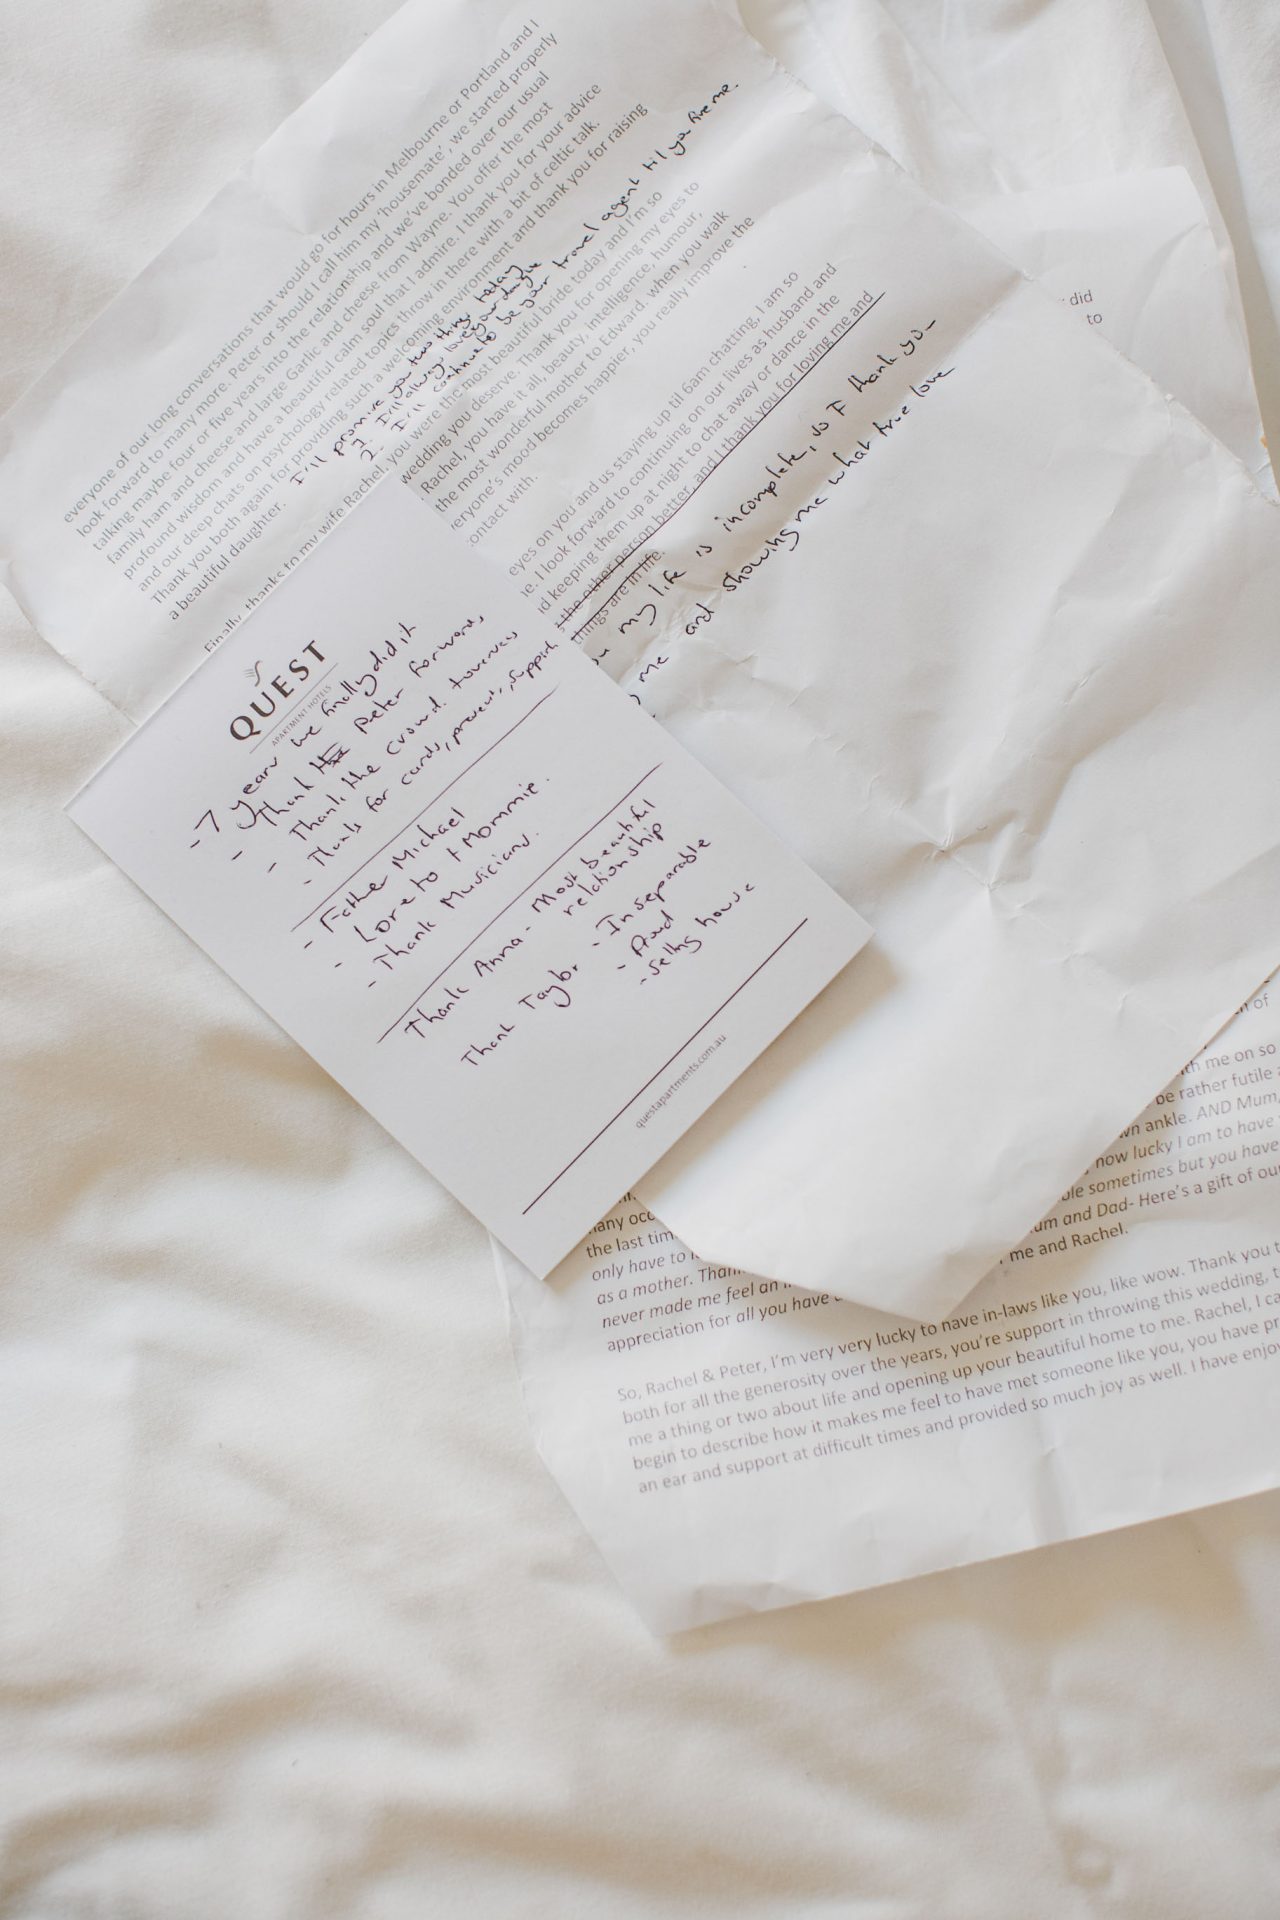 everyone of our long conversations that would go for hours in Melbourne or Portland and I
look forward to many more. Peter or should I call him my 'housemate', we started properly
talking maybe four or five years into the relationship and we've bonded over our usual
family ham and cheese and large Garlic and cheese from Wayne. You offer the most
profound wisdom and have a beautiful calm soul that I admire. I thank you for your advice
and our deep chats on psychology related topics throw in there with a bit of celtic talk.
Thank you both again for providing such a welcoming environment and thank you for raising
a beautiful daughter.
I'll promise you two things today
1. I'll always love your daughter
2. I'll continue to be your travel agent til you fire me.
Finally, thanks to my wife Rachel, you were the most beautiful bride today and I'm so
wedding you deserve. Thank you for opening my eyes to
Rachel, you have it all, beauty, intelligence, humour,
the most wonderful mother to Edward. when you walk
everyone's mood becomes happier, you really improve the
contact with.
eyes on you and us staying up til 6am chatting, I am so
e. I look forward to continuing on our lives as husband and
d keeping them up at night to chat away or dance in the
s the other person better, and I thank you for loving me and
things are in life.
my life is incomplete, so I thank you
me and showing me what true love
QUEST
APARTMENT HOTELS
- 7 years we finally did it
- Thank Peter forwords
- Thank the crowd
- Thanks for cards, presents, support
- Father Michael
- Lore to + Mommie.
- Thank Musicians.
Thank Anna - Most beautiful
relationship
Thank Taylor - Inseparable
- Proud
- Selling house
questapartments.com.au
did
to
of
th me on so
be rather futile
wn ankle. AND Mum,
how lucky I am to have
ble sometimes but you have
um and Dad- Here's a gift of our
me and Rachel.
many occ
the last tim
only have to
as a mother. Than
never made me feel an
appreciation for all you have
So, Rachel & Peter, I'm very very lucky to have in-laws like you, like wow. Thank you
both for all the generosity over the years, you're support in throwing this wedding,
me a thing or two about life and opening up your beautiful home to me. Rachel, I ca
begin to describe how it makes me feel to have met someone like you, you have pr
an ear and support at difficult times and provided so much joy as well. I have enjoy